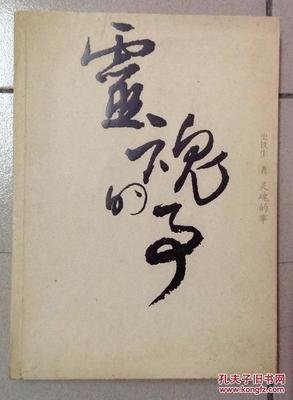 靈魂的事
史铁生 著 灵魂的事
孔夫子旧书网
kongfz.com